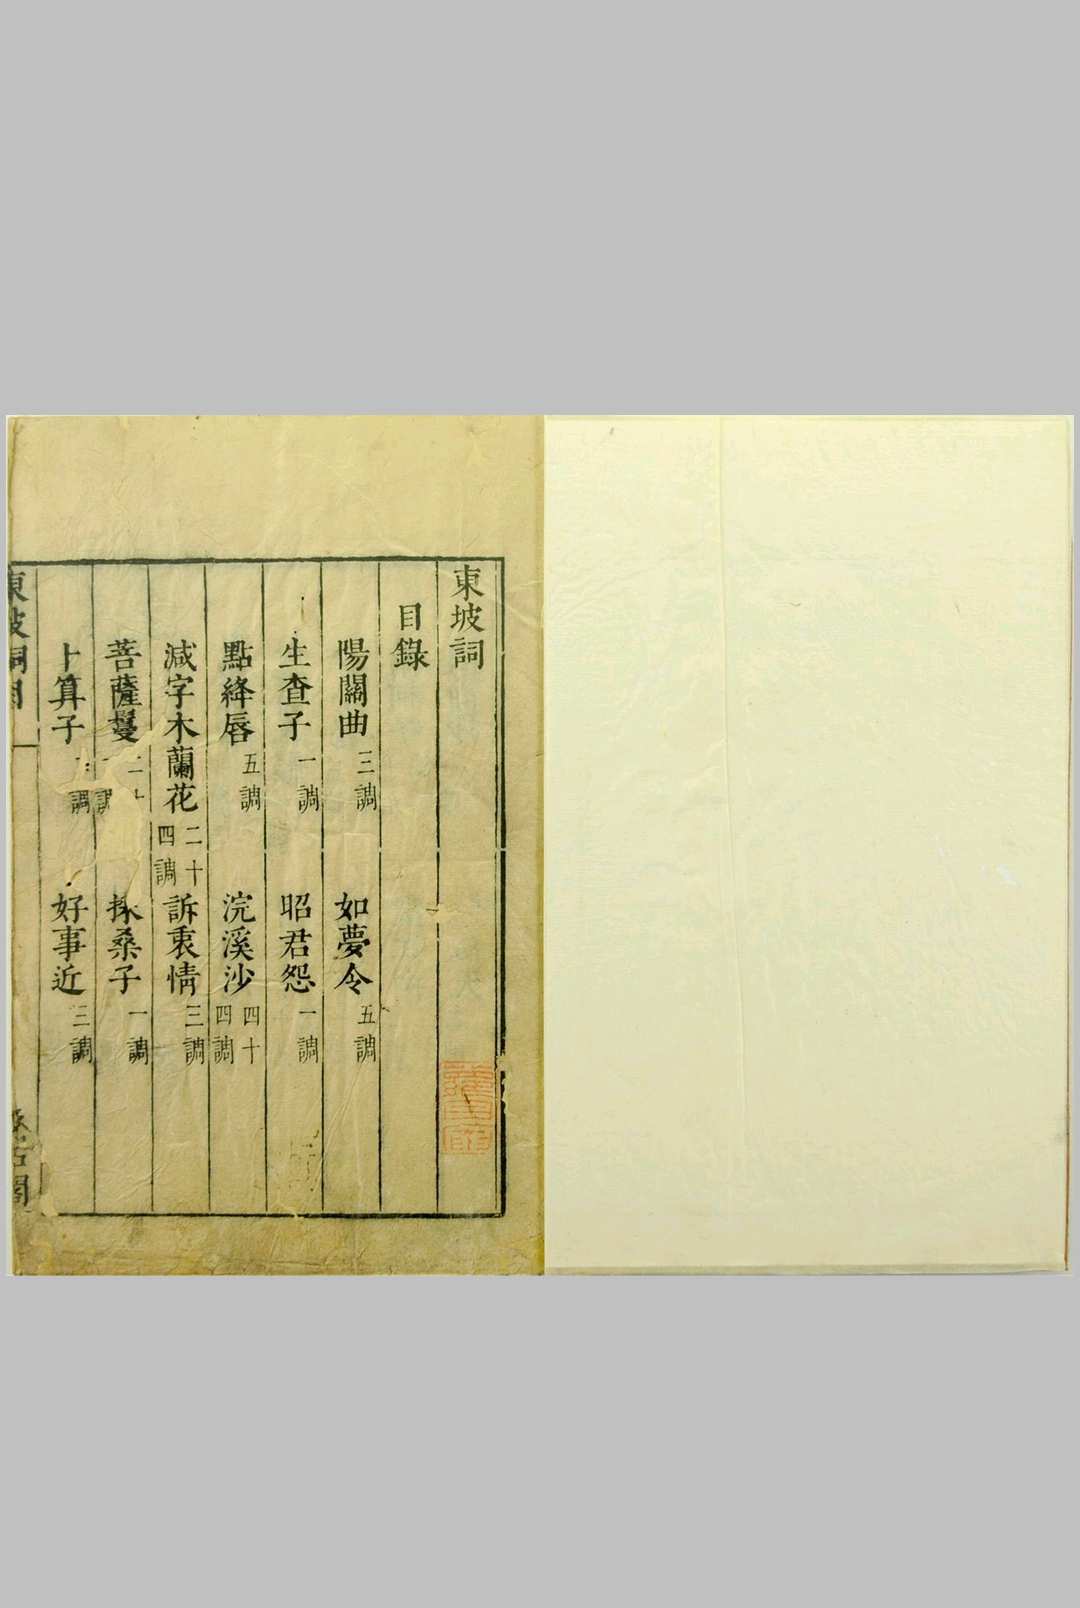 東坡詞
目錄
陽關曲 三調 如夢令 五調
生查子 一調 昭君怨 一調
點絳唇 五調 浣溪沙 四十四調
減字木蘭花 二十四調 訴衷情 三調
菩薩鬘 採桑子 一調
卜算子 調 好事近 三調
東坡詞目 一 汲古閣